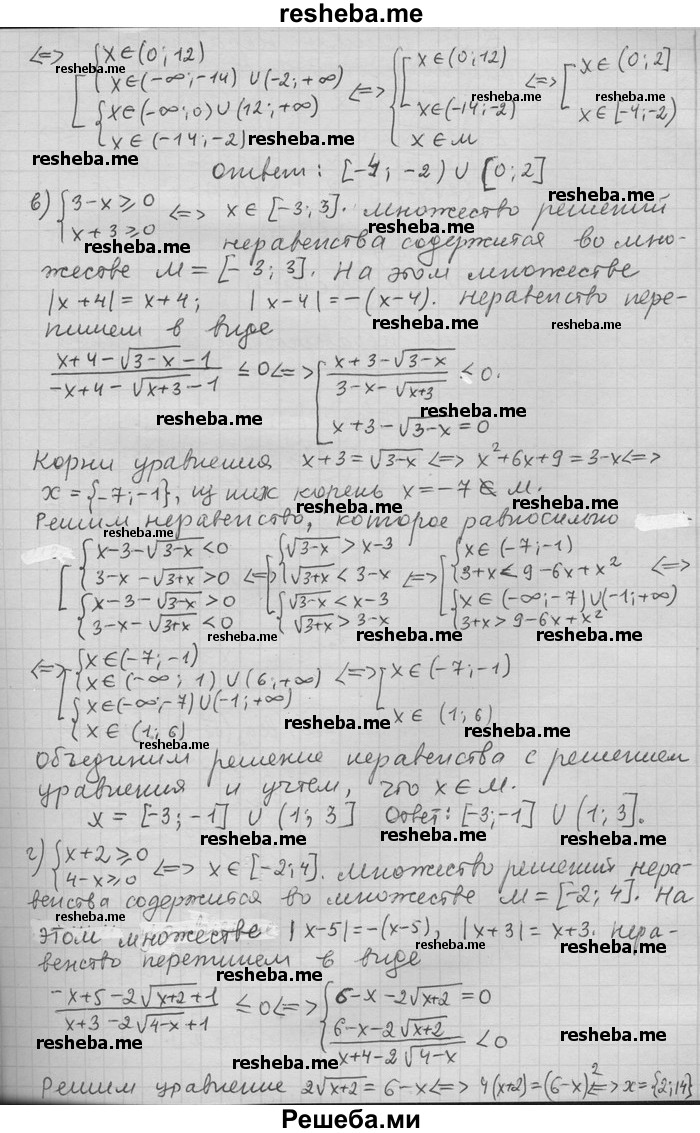 resheba.me
⟺ [ { x ∈ (0; 12) { x ∈ (-∞; -14) ∪ (-2; +∞) { x ∈ (-∞; 0) ∪ (12; +∞) { x ∈ (-14; -2) ⟺ { [ x ∈ (0; 12) x ∈ (-14; -2) x ∈ M ⟺ [ x ∈ (0; 2] x ∈ [-4; -2)
Ответ: [-4; -2) ∪ [0; 2]
в) { 3-x ≥ 0 x+3 ≥ 0 ⟺ x ∈ [-3; 3]. Множество решений
неравенства содержится во мно-
жестве M = [-3; 3]. На этом множестве
|x+4| = x+4; |x-4| = -(x-4). Неравенство пере-
пишем в виде
(x+4-√(3-x)-1)/(-x+4-√(x+3)-1) ≤ 0 ⟺ [ (x+3-√(3-x))/(3-x-√(x+3)) < 0. x+3-√(3-x) = 0
Корни уравнения x+3 = √(3-x) ⟺ x²+6x+9 = 3-x ⟺
x = {-7; -1}, из них корень x = -7 ∉ M.
Решим неравенство, которое равносильно
[ { x-3-√(3-x) < 0 3-x-√(3+x) > 0 { x-3-√(3-x) > 0 3-x-√(3+x) < 0 ⟺ [ { √(3-x) > x-3 √(3+x) < 3-x { √(3-x) < x-3 √(3+x) > 3-x ⟺ [ { x ∈ (-7; -1) 3+x < 9-6x+x² { x ∈ (-∞; -7) ∪ (-1; +∞) 3+x > 9-6x+x² ⟺
⟺ [ { x ∈ (-7; -1) x ∈ (-∞; 1) ∪ (6; +∞) { x ∈ (-∞; -7) ∪ (-1; +∞) x ∈ (1; 6) ⟺ [ x ∈ (-7; -1) x ∈ (1; 6)
Объединим решение неравенства с решением
уравнения и учтем, что x ∈ M.
x = [-3; -1] ∪ (1; 3] Ответ: [-3; -1] ∪ (1; 3].
г) { x+2 ≥ 0 4-x ≥ 0 ⟺ x ∈ [-2; 4]. Множество решений нера-
венства содержится во множестве M = [-2; 4]. На
этом множестве |x-5| = -(x-5), |x+3| = x+3. Нера-
венство перепишем в виде
(-x+5-2√(x+2)+1)/(x+3-2√(4-x)+1) ≤ 0 ⟺ [ 6-x-2√(x+2) = 0 (6-x-2√(x+2))/(x+4-2√(4-x)) < 0
Решим уравнение 2√(x+2) = 6-x ⟺ 4(x+2) = (6-x)² ⟺ x = {2; 14}
Решеба.ми